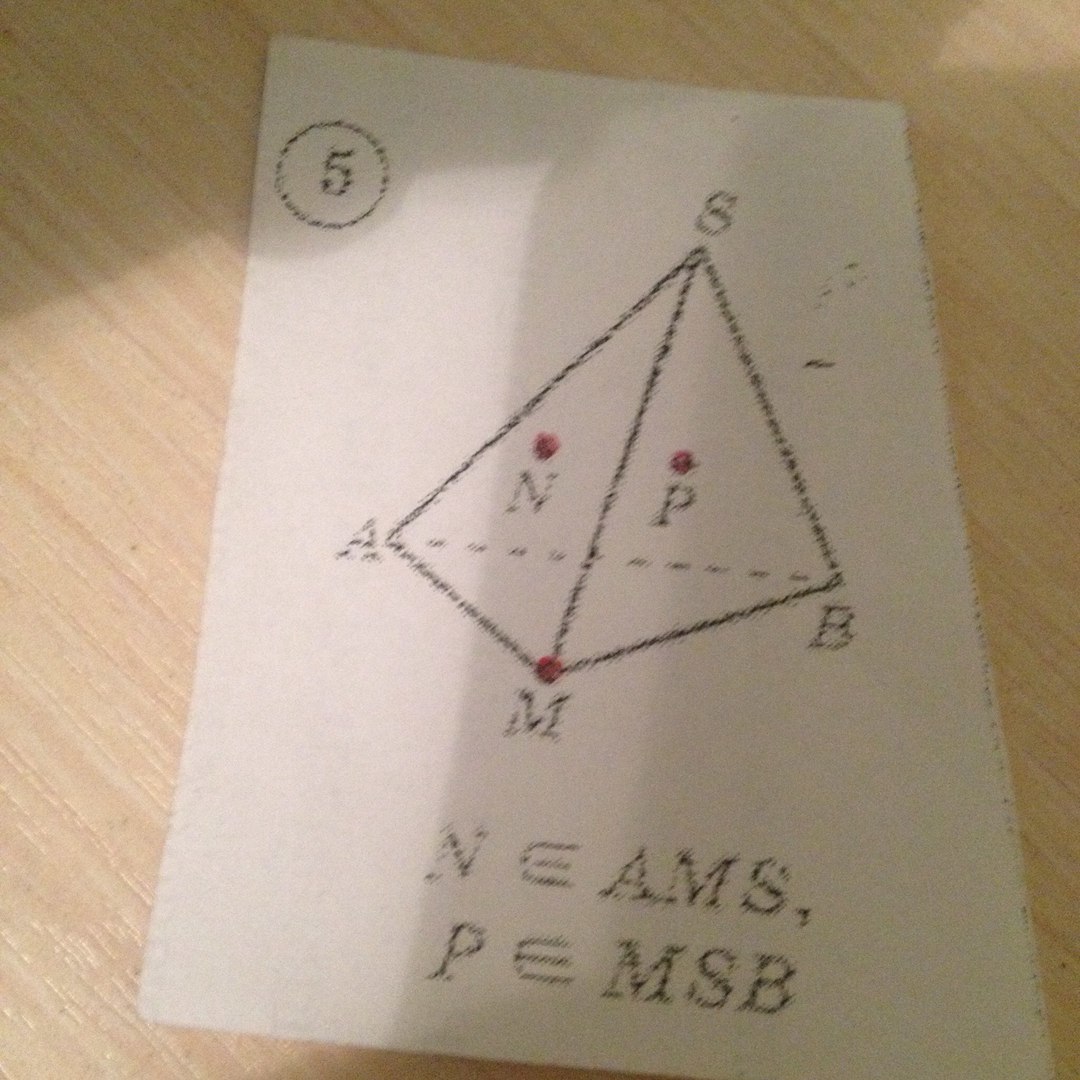 5
S
N
P
A
B
M
N ∈ AMS,
P ∈ MSB